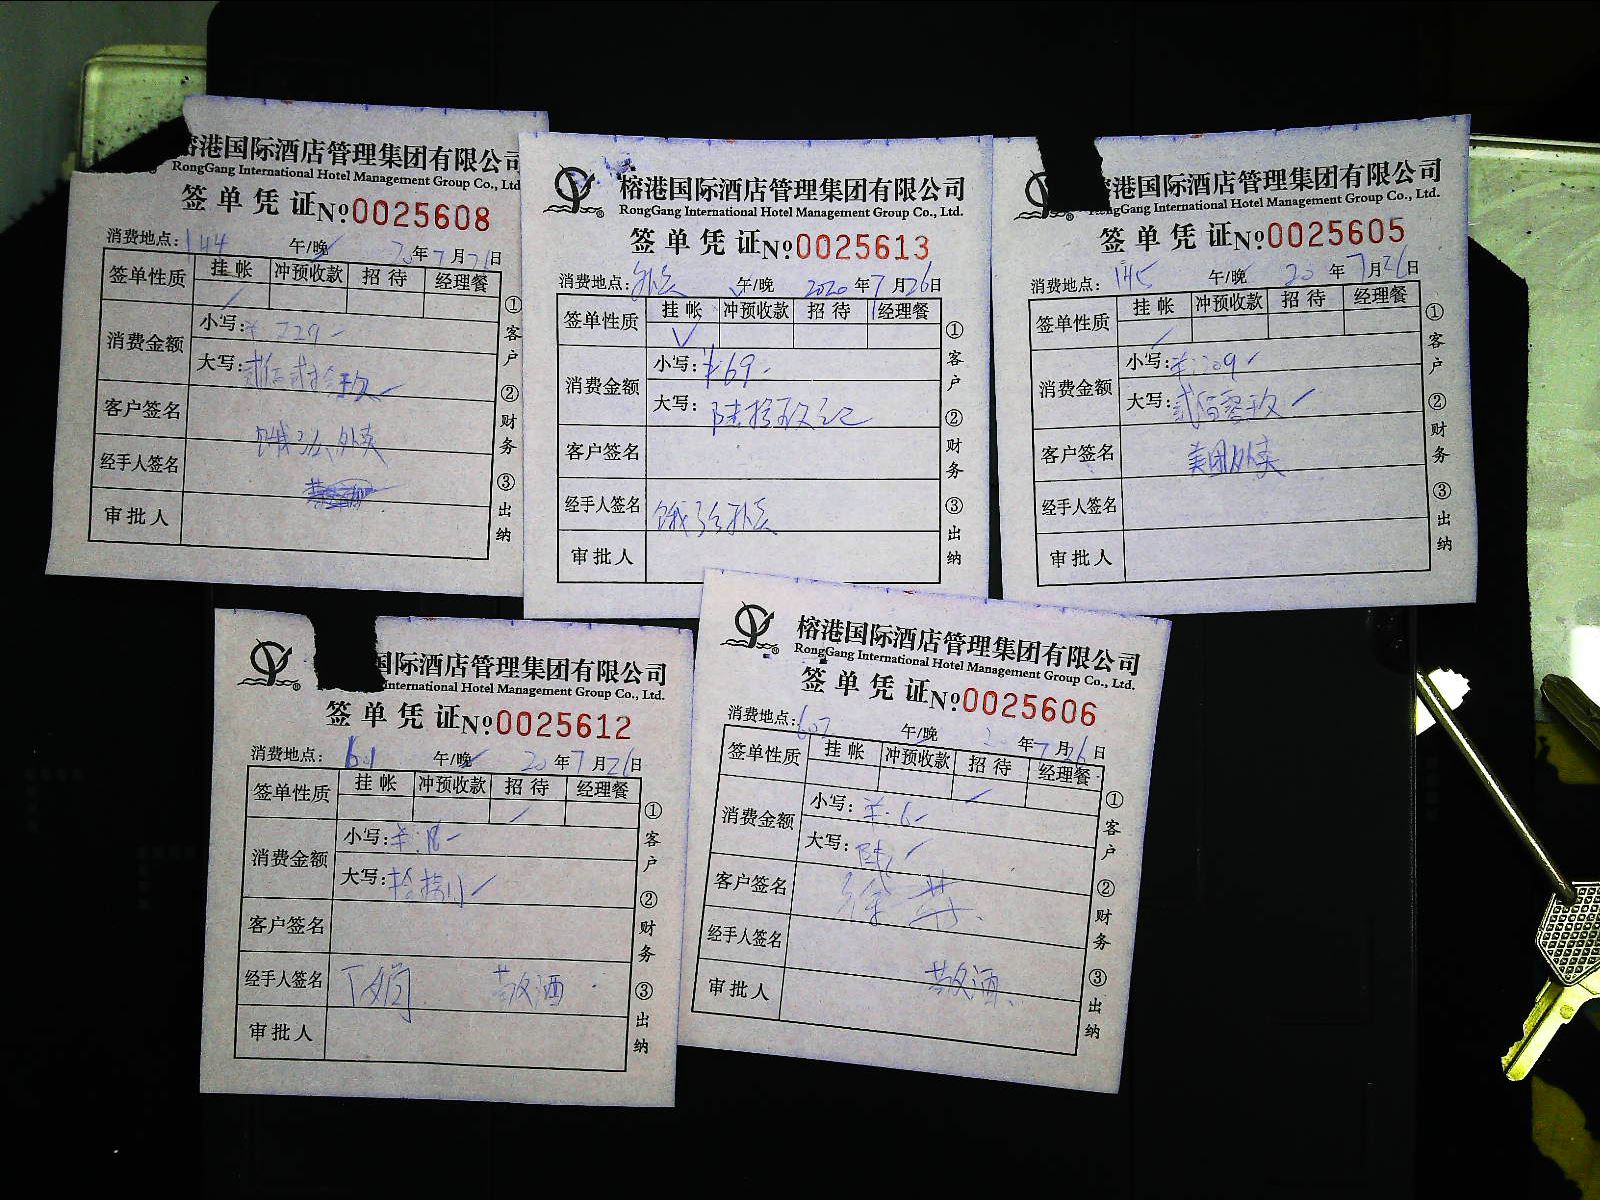 港国际酒店管理集团有限公司
RongGang International Hotel Management Group Co., Ltd.
签单凭证№0025608
消费地点：144 午/晚 20年7月26日
签单性质 挂帐 冲预收款 招待 经理餐
消费金额 小写：¥229-
大写：贰佰贰拾玖
客户签名
外卖
经手人签名
审批人
①客户 ②财务 ③出纳
榕港国际酒店管理集团有限公司
RongGang International Hotel Management Group Co., Ltd.
签单凭证№0025613
消费地点：外卖 午/晚 2020年7月26日
签单性质 挂帐 冲预收款 招待 经理餐
消费金额 小写：¥69-
大写：陆拾玖元
客户签名
经手人签名 饿了么外卖
审批人
①客户 ②财务 ③出纳
港国际酒店管理集团有限公司
RongGang International Hotel Management Group Co., Ltd.
签单凭证№0025605
消费地点：145 午/晚 20年7月26日
签单性质 挂帐 冲预收款 招待 经理餐
消费金额 小写：¥209
大写：贰佰零玖
客户签名 美团外卖
经手人签名
审批人
①客户 ②财务 ③出纳
国际酒店管理集团有限公司
International Hotel Management Group Co., Ltd.
签单凭证№0025612
消费地点：601 午/晚 20年7月26日
签单性质 挂帐 冲预收款 招待 经理餐
消费金额 小写：¥18-
大写：拾捌
客户签名
经手人签名 敬酒
审批人
①客户 ②财务 ③出纳
榕港国际酒店管理集团有限公司
RongGang International Hotel Management Group Co., Ltd.
签单凭证№0025606
消费地点：607 午/晚 20年7月26日
签单性质 挂帐 冲预收款 招待 经理餐
消费金额 小写：¥6-
大写：陆
客户签名
经手人签名
敬酒
审批人
①客户 ②财务 ③出纳